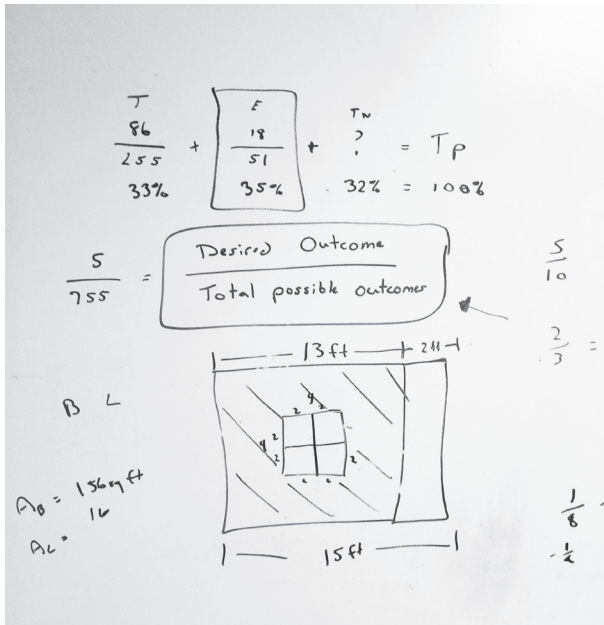 T E TN
86/255 + 18/51 + ? = TP
33% 35% 32% = 100%
5/755 = Desired Outcome / Total possible outcomes
5/10
2/3 =
13ft 2ft
4
2 2
B L
4 2
2 2
2 2
AB = 156sq ft
AL = 16
15ft
1/8